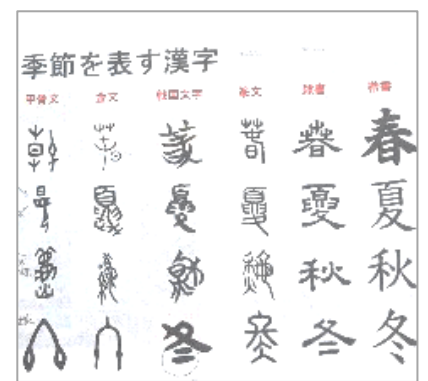 季節を表す漢字
甲骨文 金文 戦国文字 篆文 隷書 楷書
春 春 春 春 春 春
夏 夏 夏 夏 夏 夏
秋 秋 秋 秋 秋 秋
冬 冬 冬 冬 冬 冬